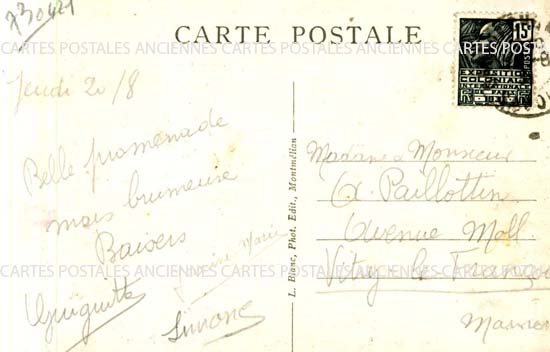 X30421
CARTE POSTALE
15c
POSTES
EXPOSITION
COLONIALE
INTERNATIONALE
PARIS
1931
Jeudi 20/8
Belle promenade
mais brumeuse
Baisers
Guiguitte
Marie
Simone
L. Blanc, Phot. Edit., Montmélian
Madame & Monsieur
A. Paillottin
Avenue Moll
Vitry le François
Marne
CARTES POSTALES ANCIENNES CARTES POSTALES ANCIENNES CARTES POSTALES
CARTES POSTALES ANCIENNES CARTES POSTALES ANCIENNES CARTES POSTALES